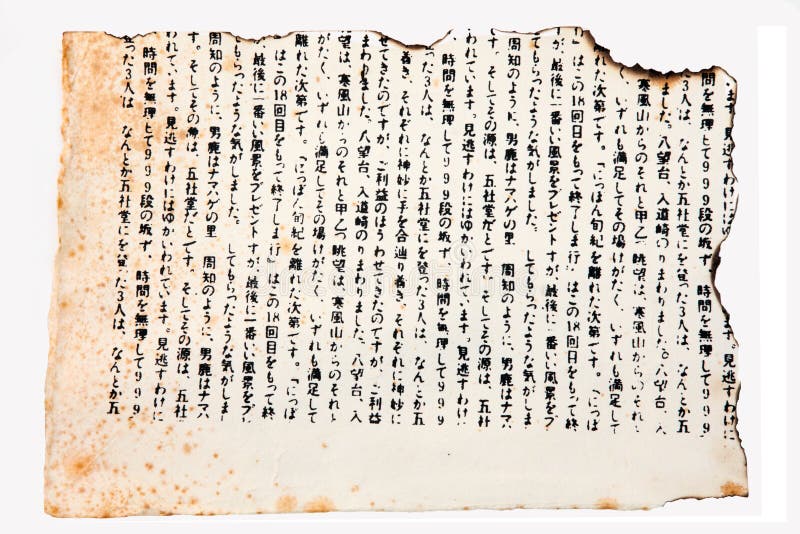 ます。見逃すわけには す。見逃すわけに
時間を無理して999段の坂ず、 時間を無理して999
3人は、なんとか五社堂にを登った3人は、なんとか五
ました。八望台、入道崎のりまわりました。八望台、入
寒風山からのそれと甲乙つ眺望は、寒風山からのそれと
く、いずれも満足してその場けがたく、いずれも満足して
れた次第です。「にっぽん旬紀を離れた次第です。「にっぽ
」はこの18回目をもって終了しま行」はこの18回目をもって終
が、最後に一番いい風景をプレゼントすが、最後に一番いい風景をプ
てもらったような気がしました。 してもらったような気がしま
周知のように、男鹿はナマハゲの里 周知のように、男鹿はナマハ
す。そしてその源は、五社堂だとです。そしてその源は、五社
われています。見逃すわけにはゆかいわれています。見逃すわけに
時間を無理して999段の坂ず、 時間を無理して999
った3人は、なんとか五社堂にを登った3人は、なんとか五
着き、それぞれに神妙に手を合辿り着き、それぞれに神妙に
せてきたのですが、ご利益のほうわせてきたのですが、ご利益
まわりました。八望台、入道崎のりまわりました。八望台、入
望は、寒風山からのそれと甲乙つ眺望は、寒風山からのそれと
がたく、いずれも満足してその場けがたく、いずれも満足して
離れた次第です。「にっぽん旬紀を離れた次第です。「にっぽ
」はこの18回目をもって終了しま行」はこの18回目をもって終
、最後に一番いい風景をプレゼントすが、最後に一番いい風景をプ
てもらったような気がしました。 してもらったような気がしま
周知のように、男鹿はナマハゲの里 周知のように、男鹿はナマハ
す。そしてその源は、五社堂だとです。そしてその源は、五社
われています。見逃すわけにはゆかいわれています。見逃すわけに
時間を無理して999段の坂ず、 時間を無理して999
登った3人は、なんとか五社堂にを登った3人は、なんとか五